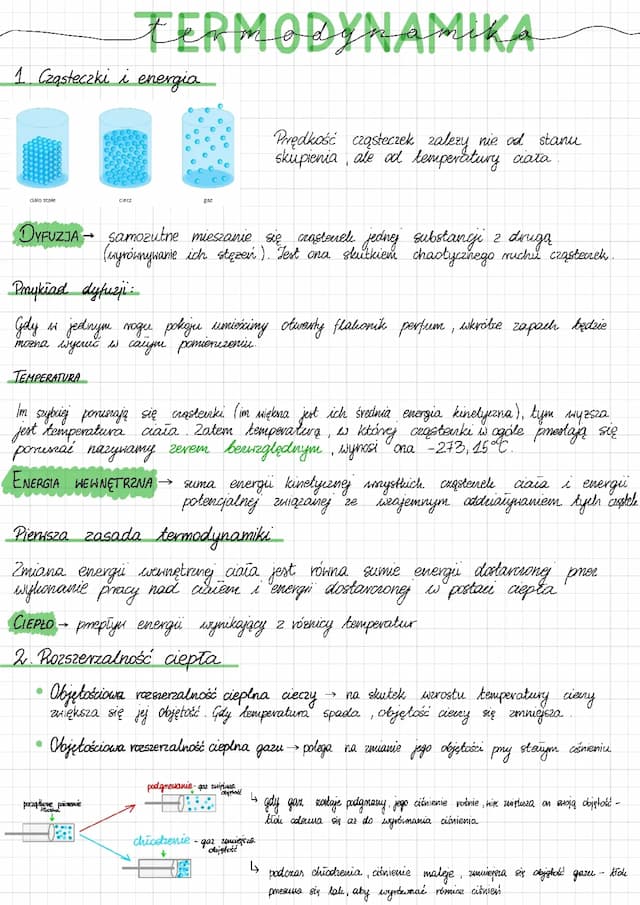 TERMODYNAMIKA
termodynamika
1. Cząsteczki i energia
ciało stałe
ciecz
gaz
Prędkość cząsteczek zależy nie od stanu
skupienia, ale od temperatury ciała.
DYFUZJA → samorzutne mieszanie się cząsteczek jednej substancji z drugą
(wyrównywanie ich stężeń). Jest ona skutkiem chaotycznego ruchu cząsteczek.
Przykład dyfuzji:
Gdy w jednym rogu pokoju umieścimy otwarty flakonik perfum, wkrótce zapach będzie
można wyczuć w całym pomieszczeniu.
TEMPERATURA
Im szybciej poruszają się cząsteczki (im większa jest ich średnia energia kinetyczna), tym wyższa
jest temperatura ciała. Zatem temperaturę, w której cząsteczki w ogóle przestają się
poruszać nazywamy zerem bezwzględnym, wynosi ona -273,15°C.
ENERGIA WEWNĘTRZNA → suma energii kinetycznej wszystkich cząsteczek ciała i energii
potencjalnej związanej ze wzajemnym oddziaływaniem tych cząstek
Pierwsza zasada termodynamiki
Zmiana energii wewnętrznej ciała jest równa sumie energii dostarczonej przez
wykonanie pracy nad ciałem i energii dostarczonej w postaci ciepła
CIEPŁO → przepływ energii wynikający z różnicy temperatur
2. Rozszerzalność ciepła
• Objętościowa rozszerzalność cieplna cieczy → na skutek wzrostu temperatury cieczy
zwiększa się jej objętość. Gdy temperatura spada, objętość cieczy się zmniejsza.
• Objętościowa rozszerzalność cieplna gazu → polega na zmianie jego objętości przy stałym ciśnieniu
podgrzewanie - gaz zwiększa
objętość
początkowe położenie
tłoka
chłodzenie - gaz zmniejsza
objętość
↳ gdy gaz zostaje podgrzany, jego ciśnienie rośnie, więc zwiększa on swoją objętość -
tłok odsuwa się aż do wyrównania ciśnienia
↳ podczas chłodzenia, ciśnienie maleje, zmniejsza się objętość gazu - tłok
przesuwa się tak, aby wyrównać różnicę ciśnień